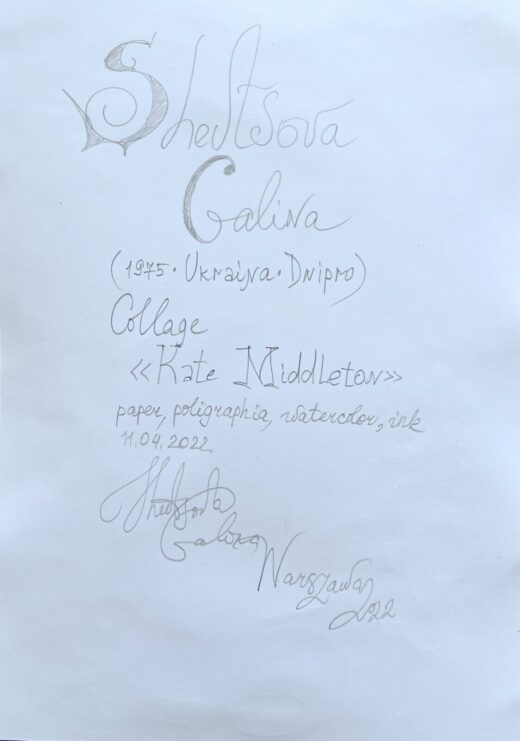 Shevtsova
Galina
(1975 · Ukraijna · Dnipro)
Collage
«Kate Middleton»
paper, poligraphia, watercolor, ink
11.04.2022
Shevtsova
Galina
Warszawa
2022